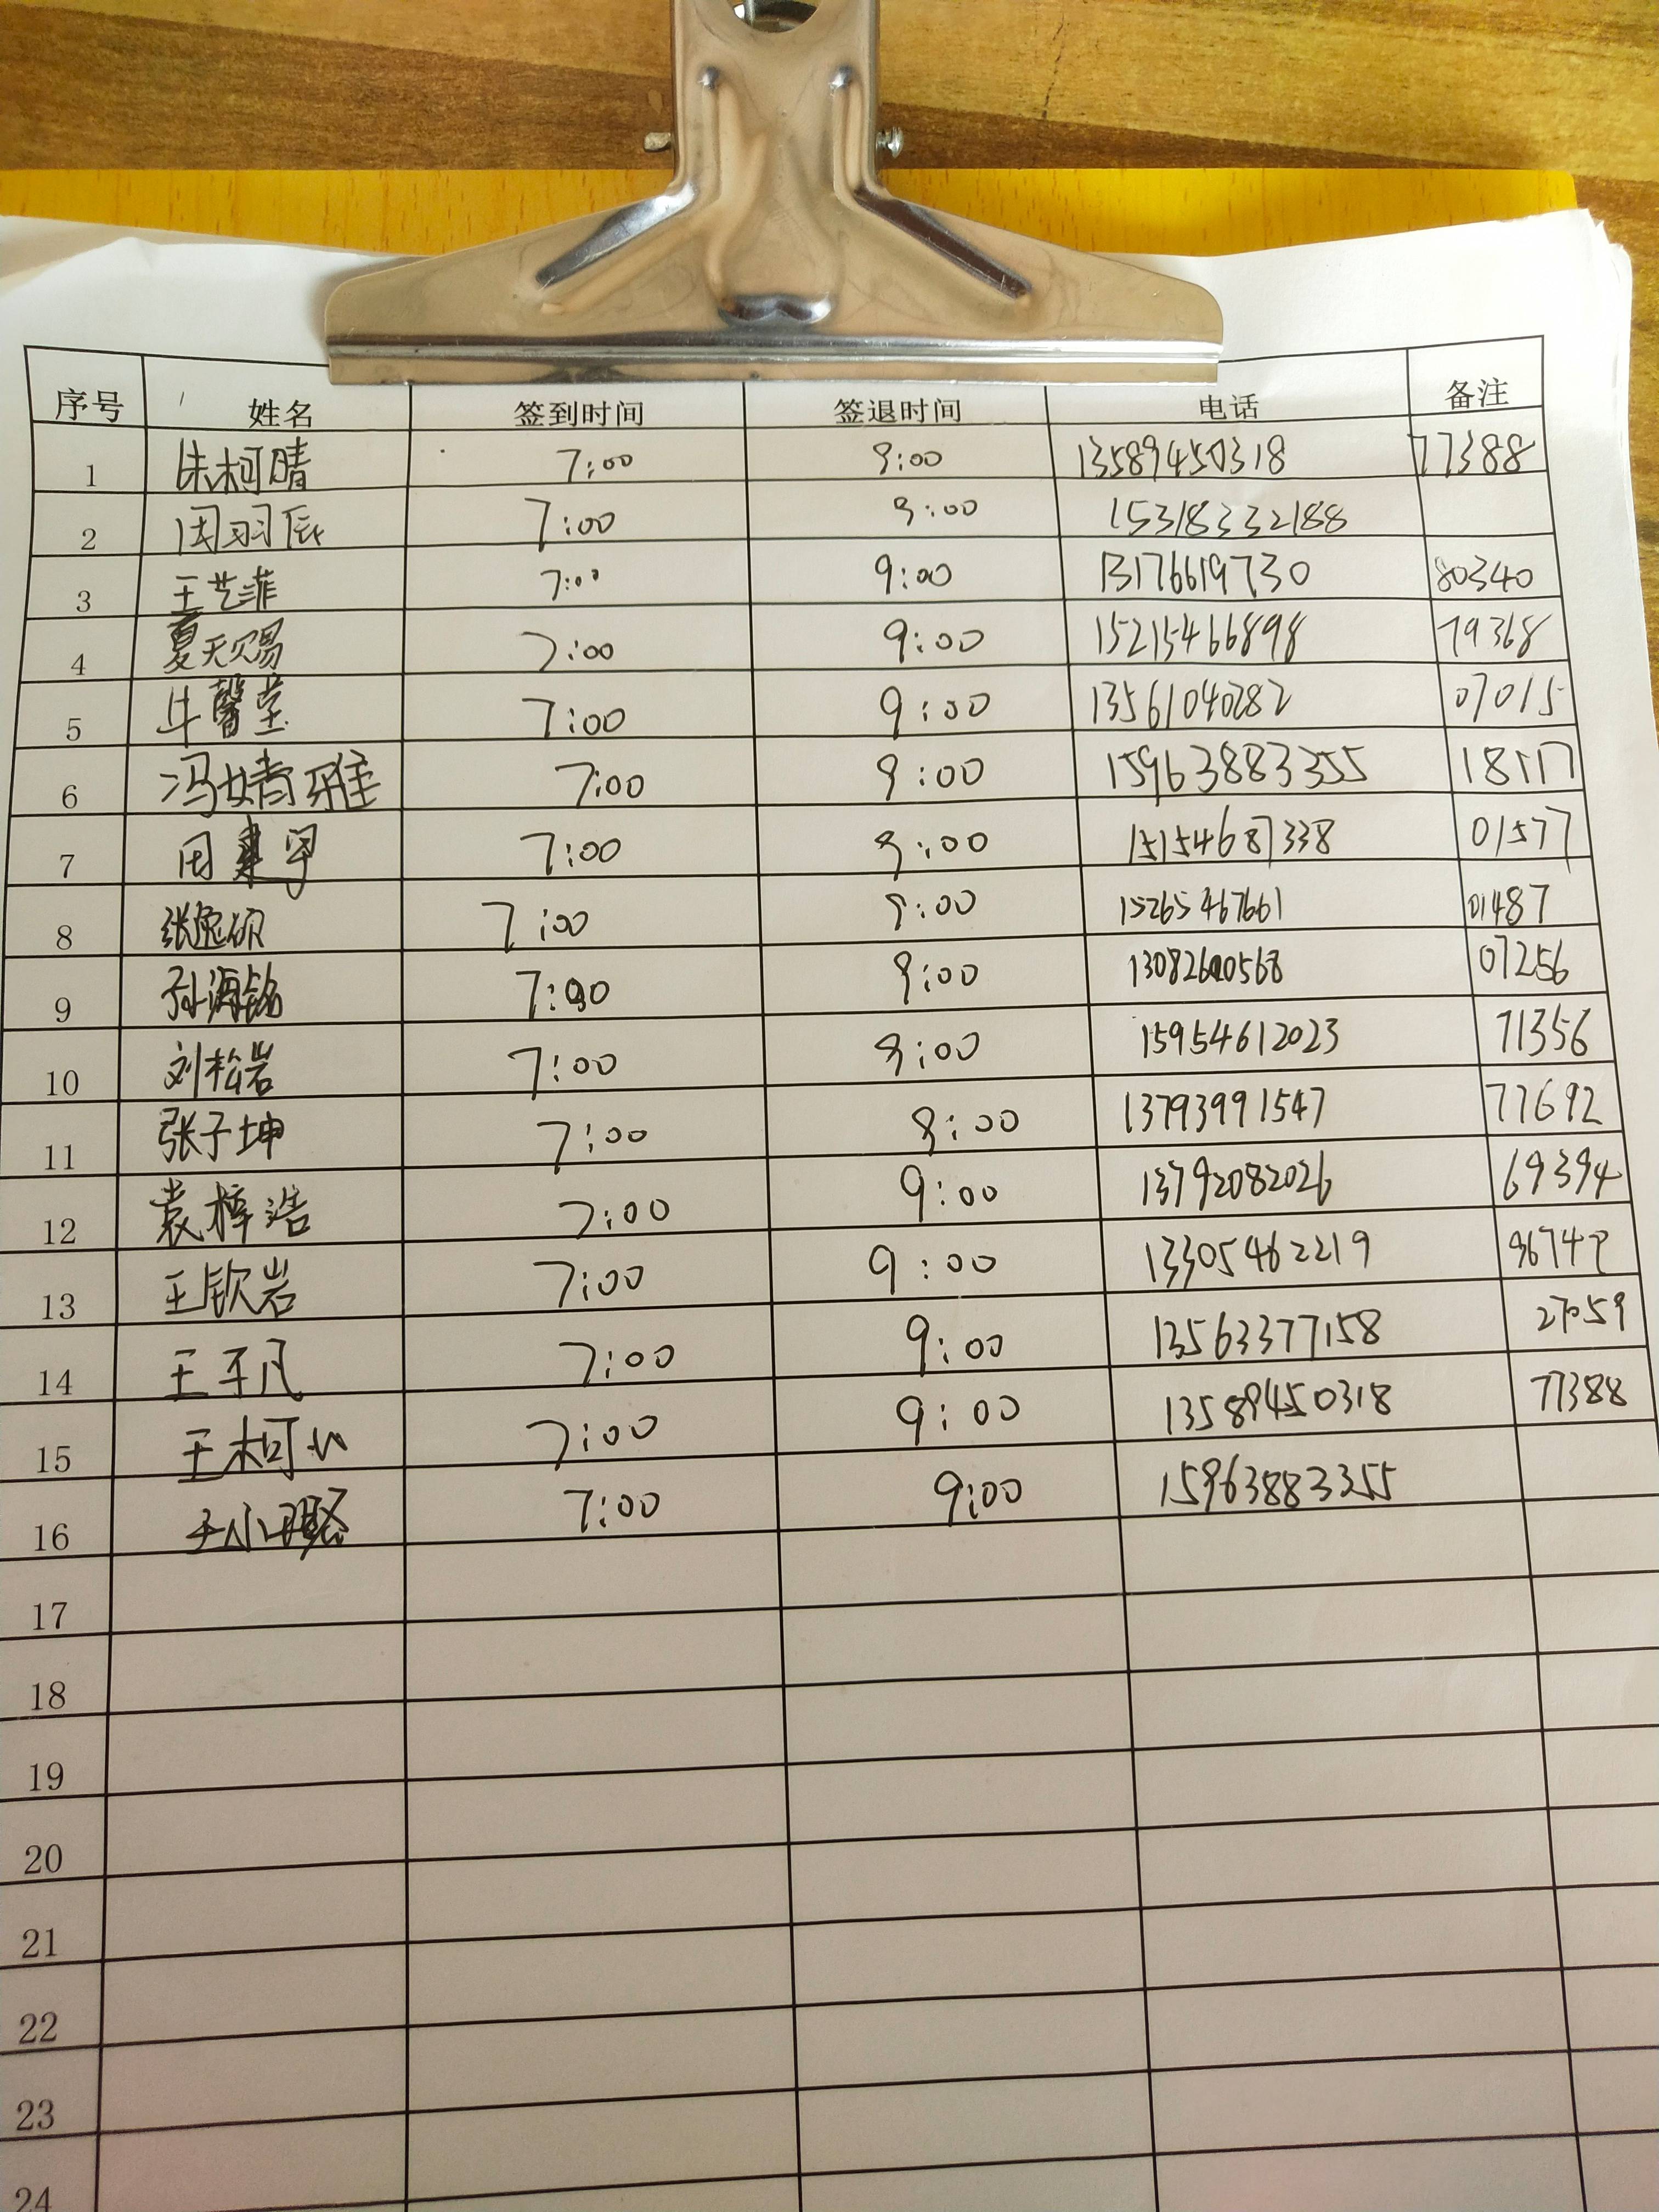 序号 姓名 签到时间 签退时间 电话 备注
1 朱柯晴 7:00 9:00 13589450318 77388
2 周羽辰 7:00 9:00 15318332188
3 王艺菲 7:00 9:00 13176619730 80340
4 夏天赐 7:00 9:00 15215466898 79368
5 牛馨莹 7:00 9:00 13561040282 07015
6 冯婧雅 7:00 9:00 15963883355 18117
7 田建 7:00 9:00 15154687338 01577
8 张逸硕 7:00 9:00 15265467661 01487
9 孙海铭 7:00 9:00 07256
10 刘松岩 7:00 9:00 15954612023 71356
11 张子坤 7:00 9:00 13793991547 77692
12 袁梓浩 7:00 9:00 13792082026 69394
13 王钦岩 7:00 9:00 13305462219
14 王平凡 7:00 9:00 13563377158 27059
15 王柯 7:00 9:00 13589450318 77388
16 王小 7:00 9:00 15963883355
17
18
19
20
21
22
23
24